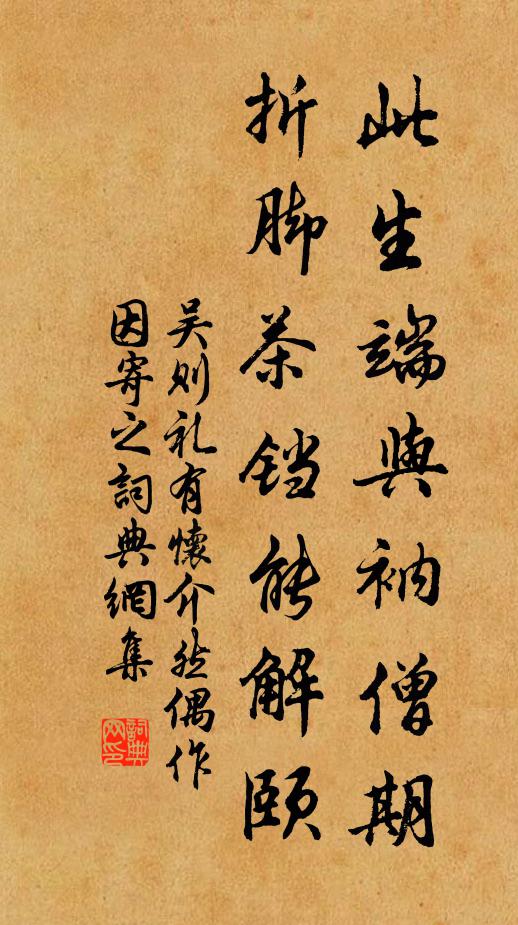 此生端與衲僧期
折脚茶铛能解頤
吴则礼有懷介然偶作
因寄之詞典網集
詞典網印